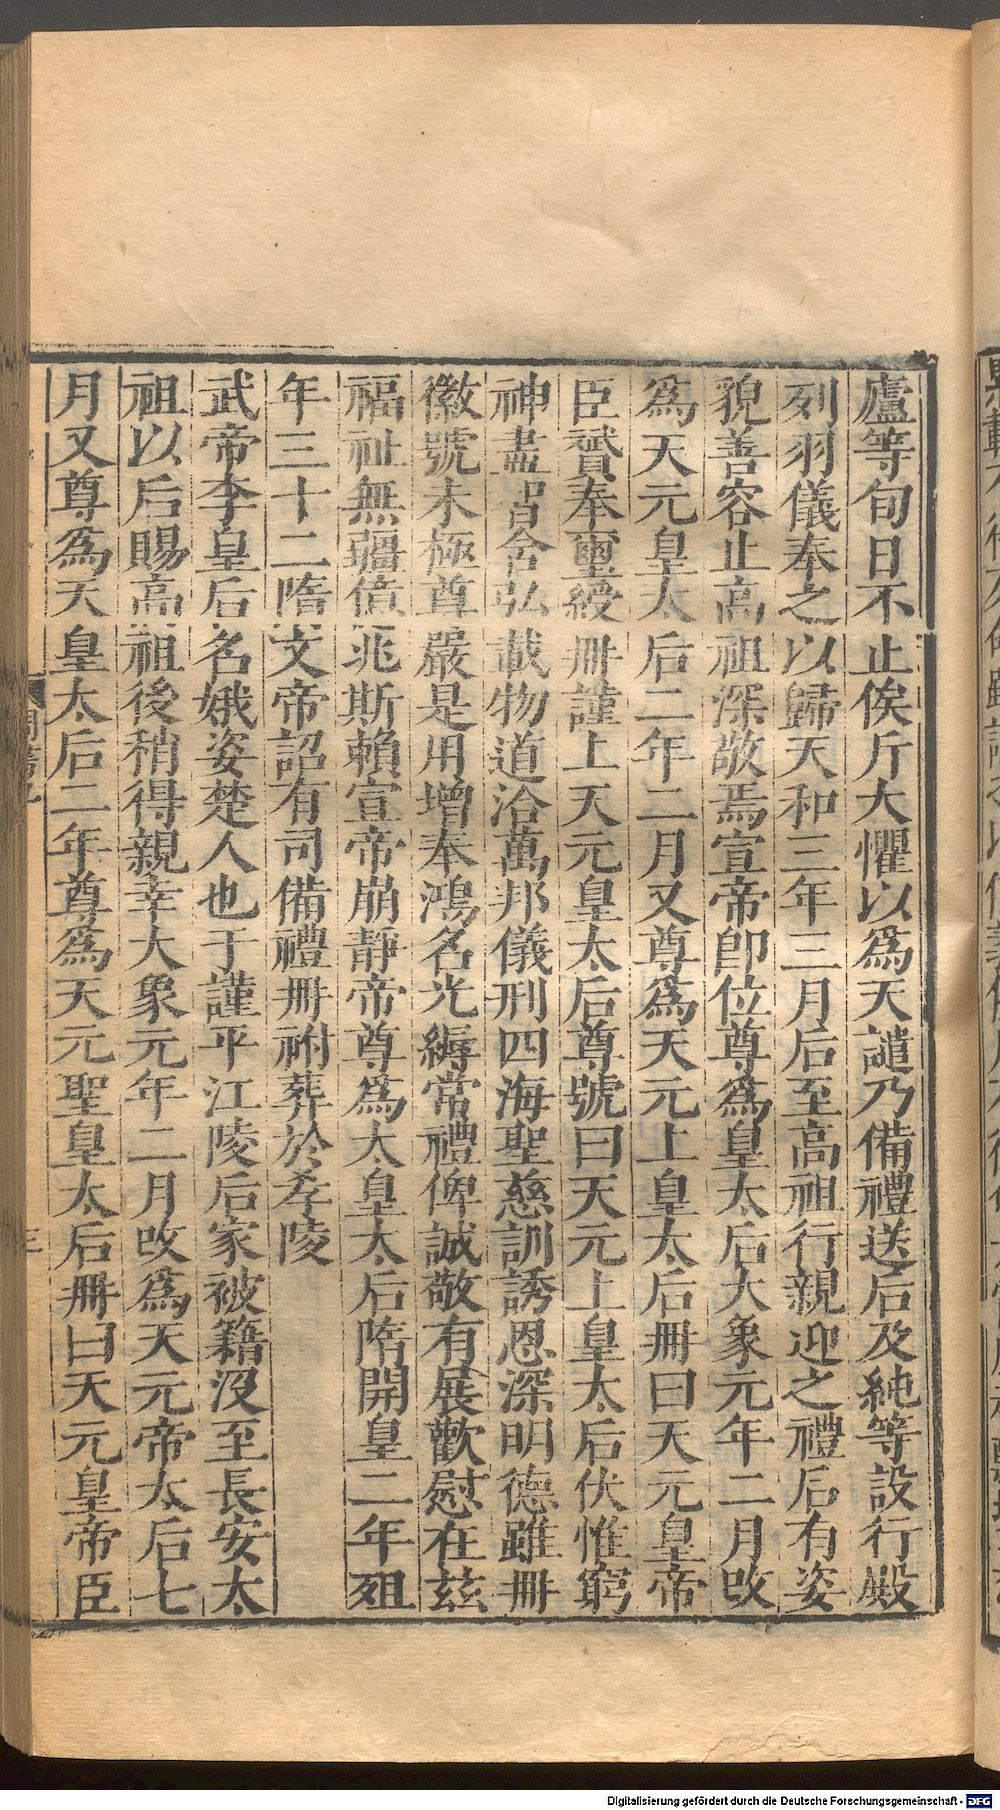 廬等旬日不止俟斤大懼以爲天譴乃備禮送后及純等設行殿
列羽儀奉之以歸天和三年三月后至高祖行親迎之禮后有姿
貌善容止高祖深敬焉宣帝卽位尊爲皇太后大象元年二月改
爲天元皇太后二年二月又尊爲天元上皇太后冊曰天元皇帝
臣贇奉璽綬冊謹上天元皇太后尊號曰天元上皇太后伏惟窮
神盡智含弘載物道洽萬邦儀刑四海聖慈訓誘恩深明德雖冊
徽號未極尊嚴是用增奉鴻名光縟常禮俾誠敬有展歡慰在茲
福祉無疆億兆斯賴宣帝崩靜帝尊爲太皇太后隋開皇二年殂
年三十二隋文帝詔有司備禮冊祔葬於孝陵
武帝李皇后名娥姿楚人也于謹平江陵后家被籍沒至長安太
祖以后賜高祖後稍得親幸大象元年二月改爲天元帝太后七
月又尊爲天皇太后二年尊爲天元聖皇太后冊曰天元皇帝臣
三
Digitalisierung gefördert durch die Deutsche Forschungsgemeinschaft - DFG